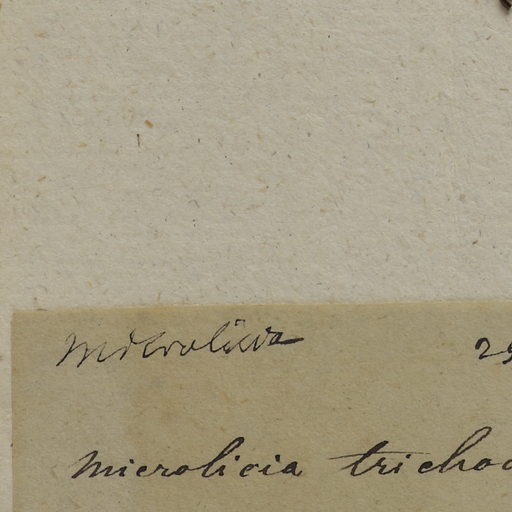 Microlicia 29
Microlicia trichoc